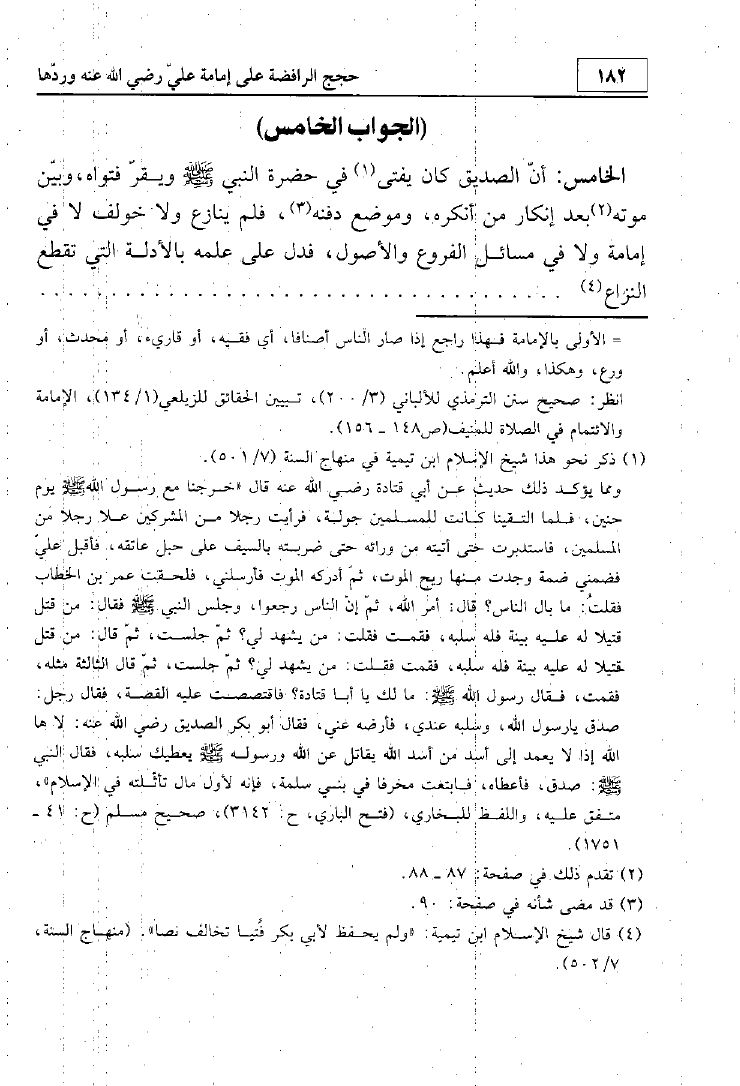 ١٨٢
حجج الرافضة على إمامة عليّ رضي الله عنه وردّها
(الجواب الخامس)
الخامس: أنّ الصديق كان يفتى(١) في حضرة النبي ﷺ ويقرّ فتواه، وبيّن
موته(٢) بعد إنكار من أنكره، وموضع دفنه(٣)، فلم ينازع ولا خولف لا في
إمامة ولا في مسائل الفروع والأصول، فدل على علمه بالأدلة التي تقطع
النزاع(٤) ........................................
= الأولى بالإمامة فهذا راجع إذا صار الناس أصنافا، أي فقيه، أو قاريء، أو محدث، أو
ورع، وهكذا، والله أعلم.
انظر: صحيح سنن الترمذي للألباني (٣/ ٢٠٠)، تبيين الحقائق للزيلعي(١/ ١٣٤)، الإمامة
والائتمام في الصلاة للمنيف(ص١٤٨ ـ ١٥٦).
(١) ذكر نحو هذا شيخ الإسلام ابن تيمية في منهاج السنة (٧/ ٥٠١).
ومما يؤكد ذلك حديث عن أبي قتادة رضي الله عنه قال «خرجنا مع رسول الله ﷺ يوم
حنين، فلما التقينا كانت للمسلمين جولية، فرأيت رجلا من المشركين علا رجلا من
المسلمين، فاستدبرت حتى أتيته من ورائه حتى ضربته بالسيف على حبل عاتقه، فأقبل عليّ
فضمني ضمة وجدت منها ريح الموت، ثمّ أدركه الموت فأرسلني، فلحقت عمر بن الخطاب
فقلتُ: ما بال الناس؟ قال: أمر الله، ثمّ إنّ الناس رجعوا، وجلس النبي ﷺ فقال: من قتل
قتيلا له عليه بينة فله سلبه، فقمت فقلت: من يشهد لي؟ ثمّ جلست، ثمّ قال: من قتل
قتيلا له عليه بينة فله سلبه، فقمت فقلت: من يشهد لي؟ ثمّ جلست، ثمّ قال الثالثة مثله،
فقمت، فقال رسول الله ﷺ: ما لك يا أبا قتادة؟ فاقتصصت عليه القصة، فقال رجل:
صدق يارسول الله، وسلبه عندي، فأرضه عني، فقال أبو بكر الصديق رضي الله عنه: لا ها
الله إذا لا يعمد إلى أسد من أسد الله يقاتل عن الله ورسوله ﷺ يعطيك سلبه، فقال النبي
ﷺ: صدق، فأعطاه، فابتعت مخرفا في بني سلمة، فإنه لأول مال تأثّلته في الإسلام»،
متفق عليه، واللفظ للبخاري، (فتح الباري، ح: ٣١٤٢)، صحيح مسلم (ح: ٤١ ـ
١٧٥١).
(٢) تقدم ذلك في صفحة: ٨٧ ـ ٨٨.
(٣) قد مضى شأنه في صفحة: ٩٠.
(٤) قال شيخ الإسلام ابن تيمية: «ولم يحفظ لأبي بكر فُتيا تخالف نصا». (منهاج السنة،
٧/ ٥٠٢).